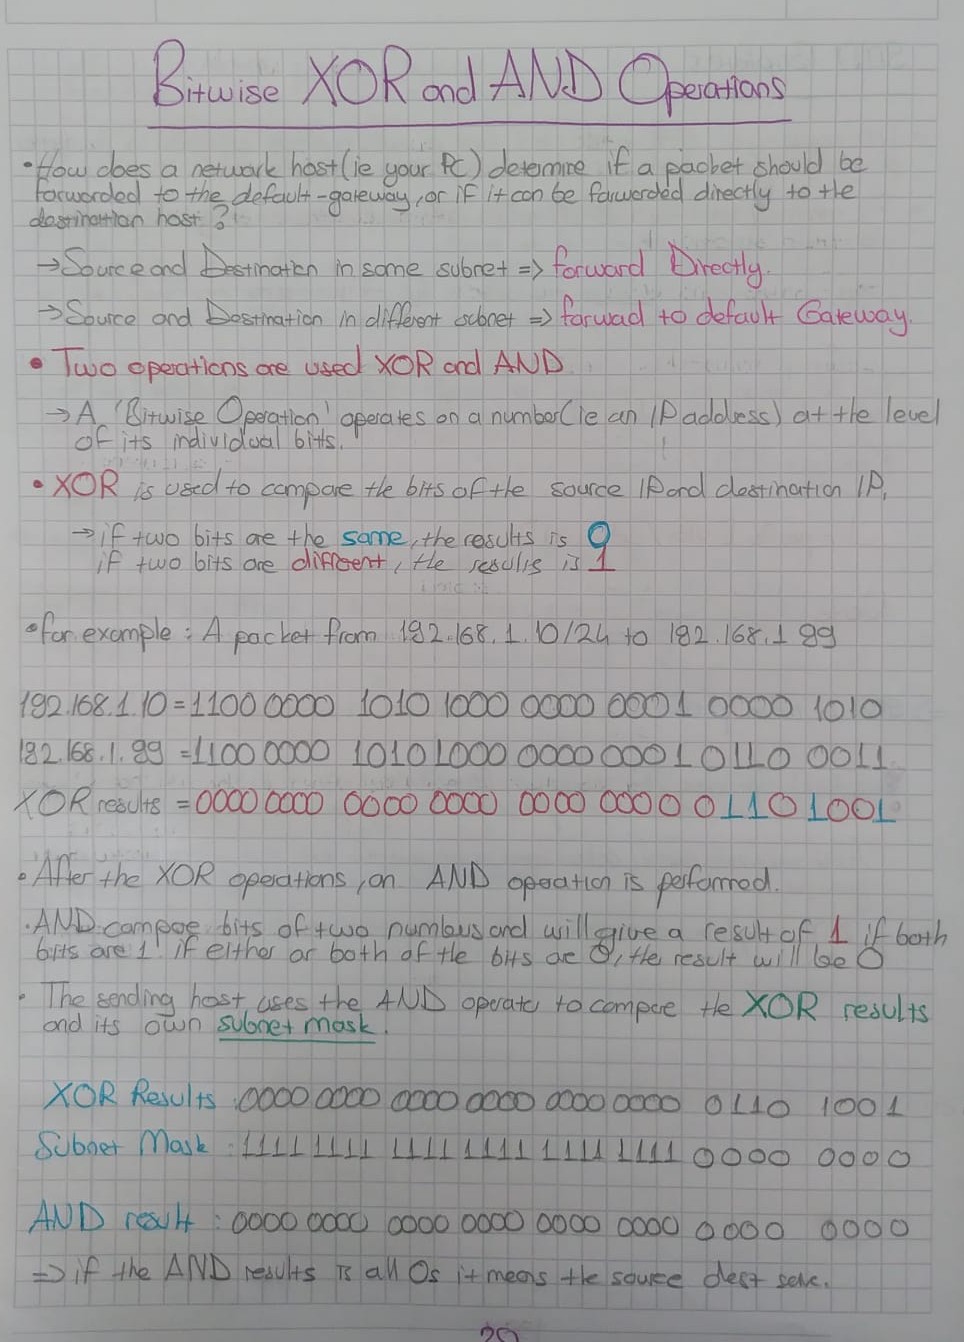 Bitwise XOR and AND Operations
• How does a network host (ie your PC) determine if a packet should be
forwarded to the default-gateway, or if it can be forwarded directly to the
destination host?
→ Source and Destination in same subnet => forward Directly.
→ Source and Destination in different subnet => forwad to default Gateway.
• Two operations are used XOR and AND
→ A 'Bitwise Operation' operates on a number (ie an IP address) at the level
of its individual bits.
• XOR is used to compare the bits of the source IP and destination IP.
→ if two bits are the same, the results is 0
if two bits are different, the results is 1
• for example : A packet from 192.168.1.10/24 to 192.168.1 99
192.168.1.10 = 1100 0000 1010 1000 0000 0001 0000 1010
192.168.1.99 = 1100 0000 1010 1000 0000 0001 0110 0011
XOR results = 0000 0000 0000 0000 0000 0000 0110 1001
• After the XOR operations, an AND operation is performed.
• AND compare bits of two numbers and will give a result of 1 if both
bits are 1. if either or both of the bits are 0, the result will be 0
• The sending host uses the AND operator to compare the XOR results
and its own subnet mask.
XOR Results : 0000 0000 0000 0000 0000 0000 0110 1001
Subnet Mask : 1111 1111 1111 1111 1111 1111 0000 0000
AND result : 0000 0000 0000 0000 0000 0000 0000 0000
=> if the AND results is all 0s it means the source dest